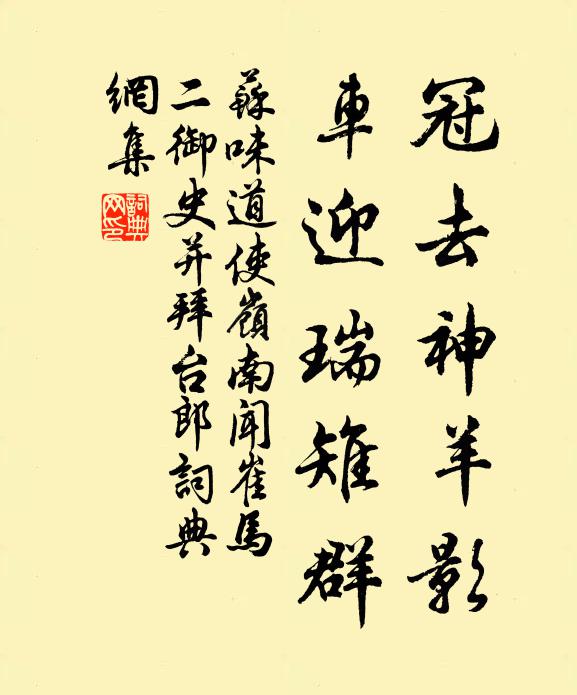 冠去神羊影
車迎瑞雉群
蘇味道使嶺南聞崔馬
二御史并拜台郎詞典
網集
詞典網印